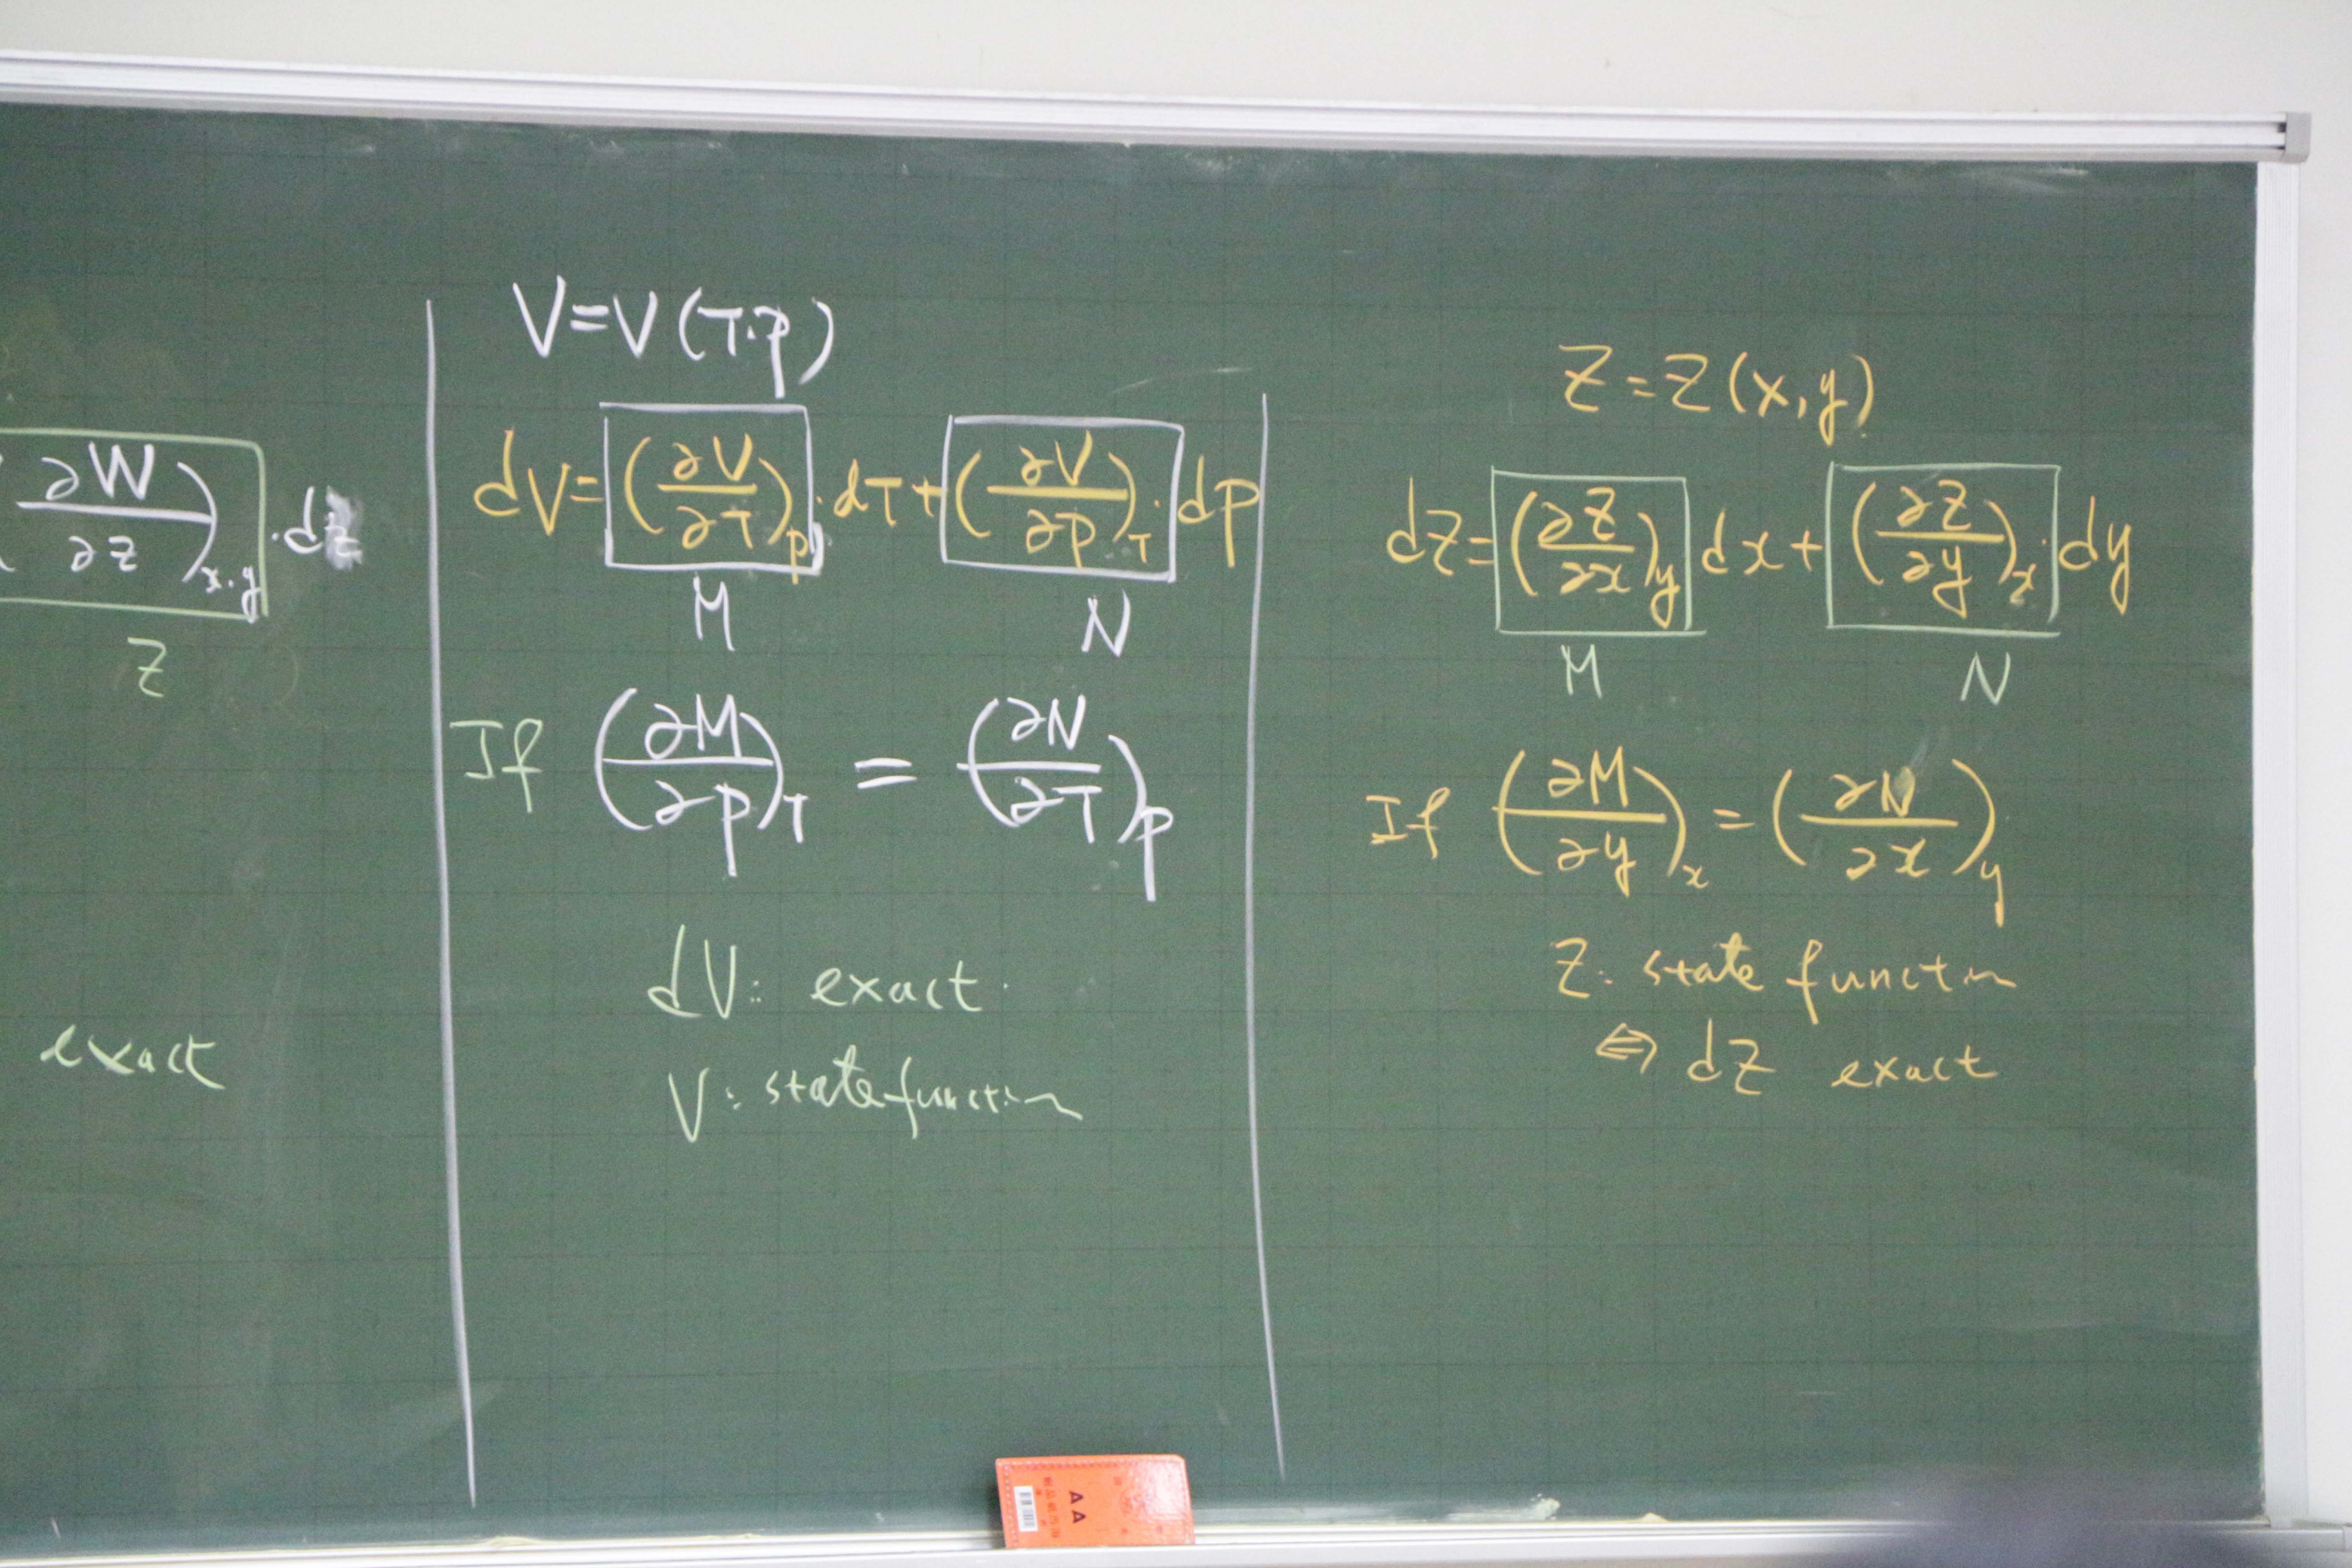 (∂W/∂z)x.y .dz
Z
exact
V=V(T.P)
dV=(∂V/∂T)P.dT+(∂V/∂P)T.dP
M N
If (∂M/∂P)T = (∂N/∂T)P
dV: exact.
V: state function
Z=Z(x,y)
dZ=(∂Z/∂x)y dx+(∂Z/∂y)x.dy
M N
If (∂M/∂y)x = (∂N/∂x)y
Z: state function
⇔ dZ exact
AA